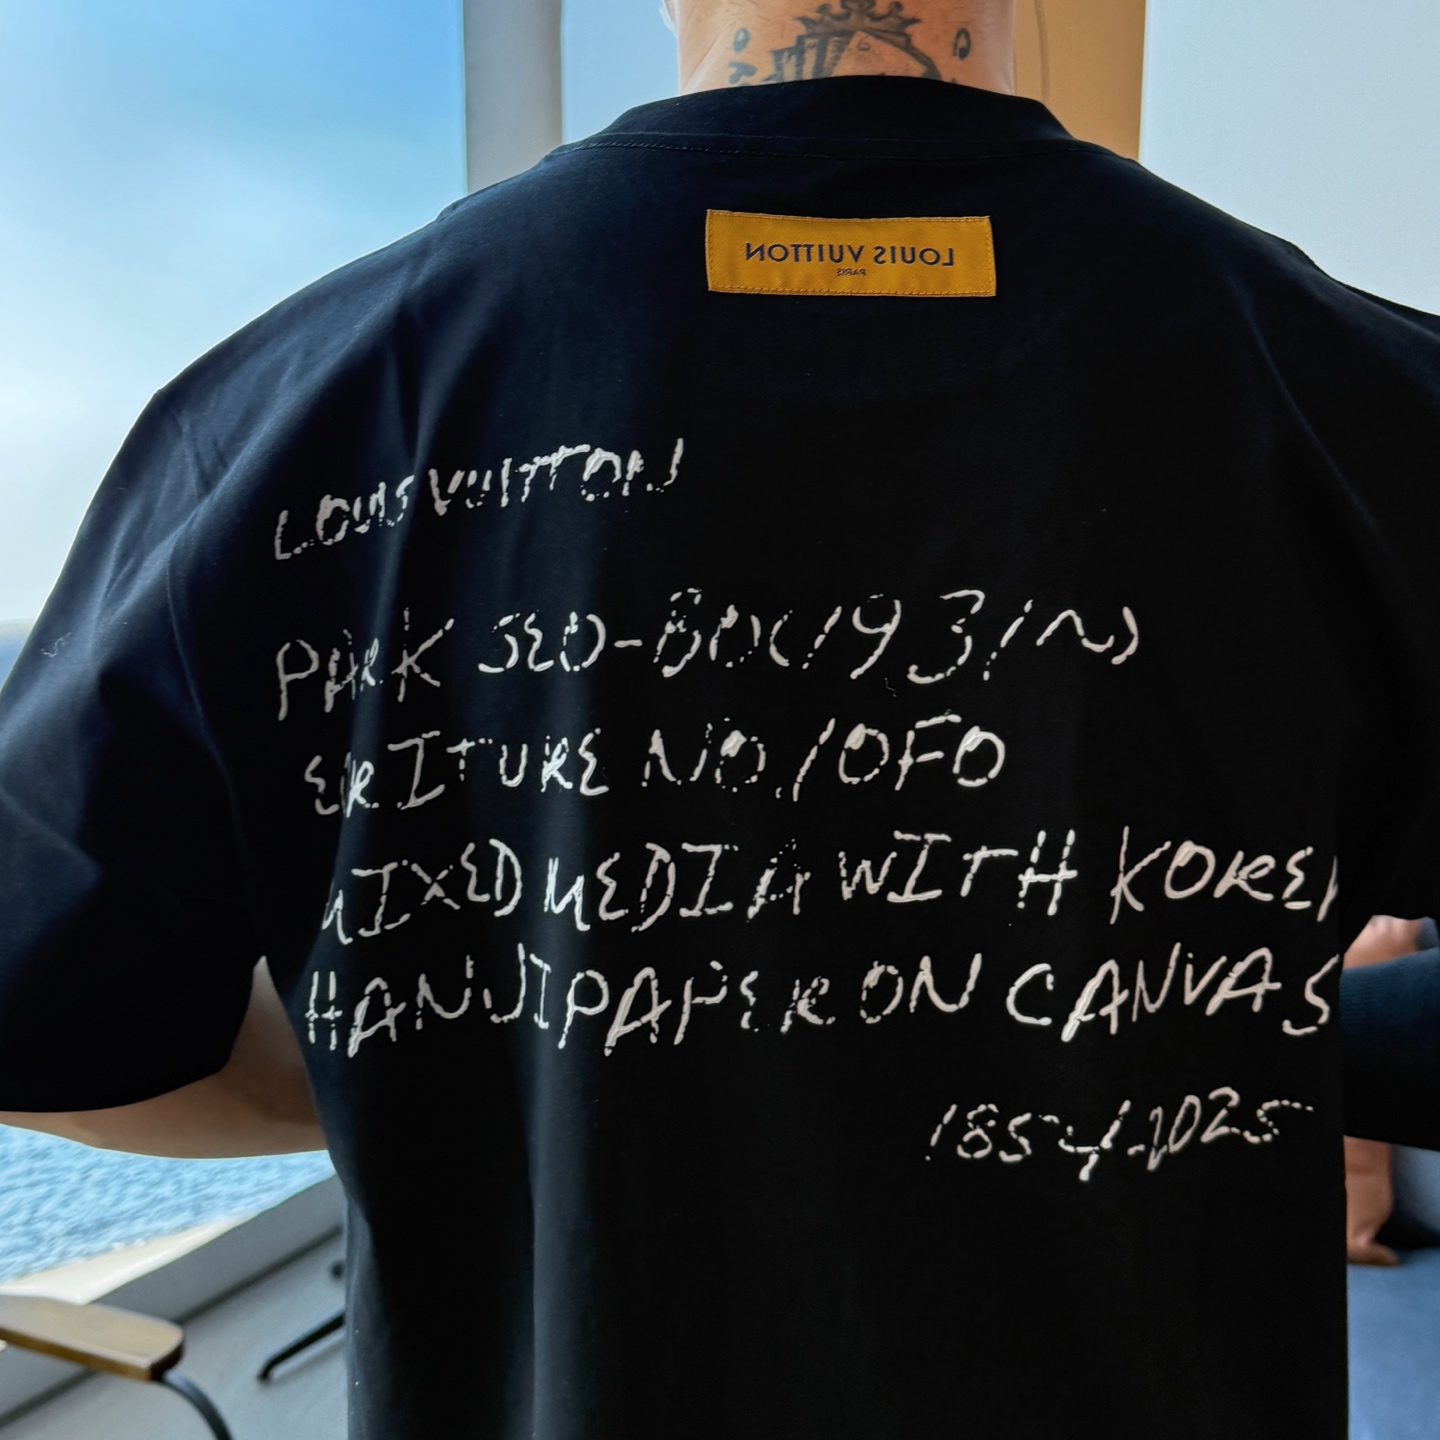 LOUIS VUITTON
PARIS
LOUIS VUITTON
PARK SEO-BO(1931~)
ECRITURE NO./OFO
MIXED MEDIA WITH KOREA
HANJI PAPER ON CANVAS
1854-2025